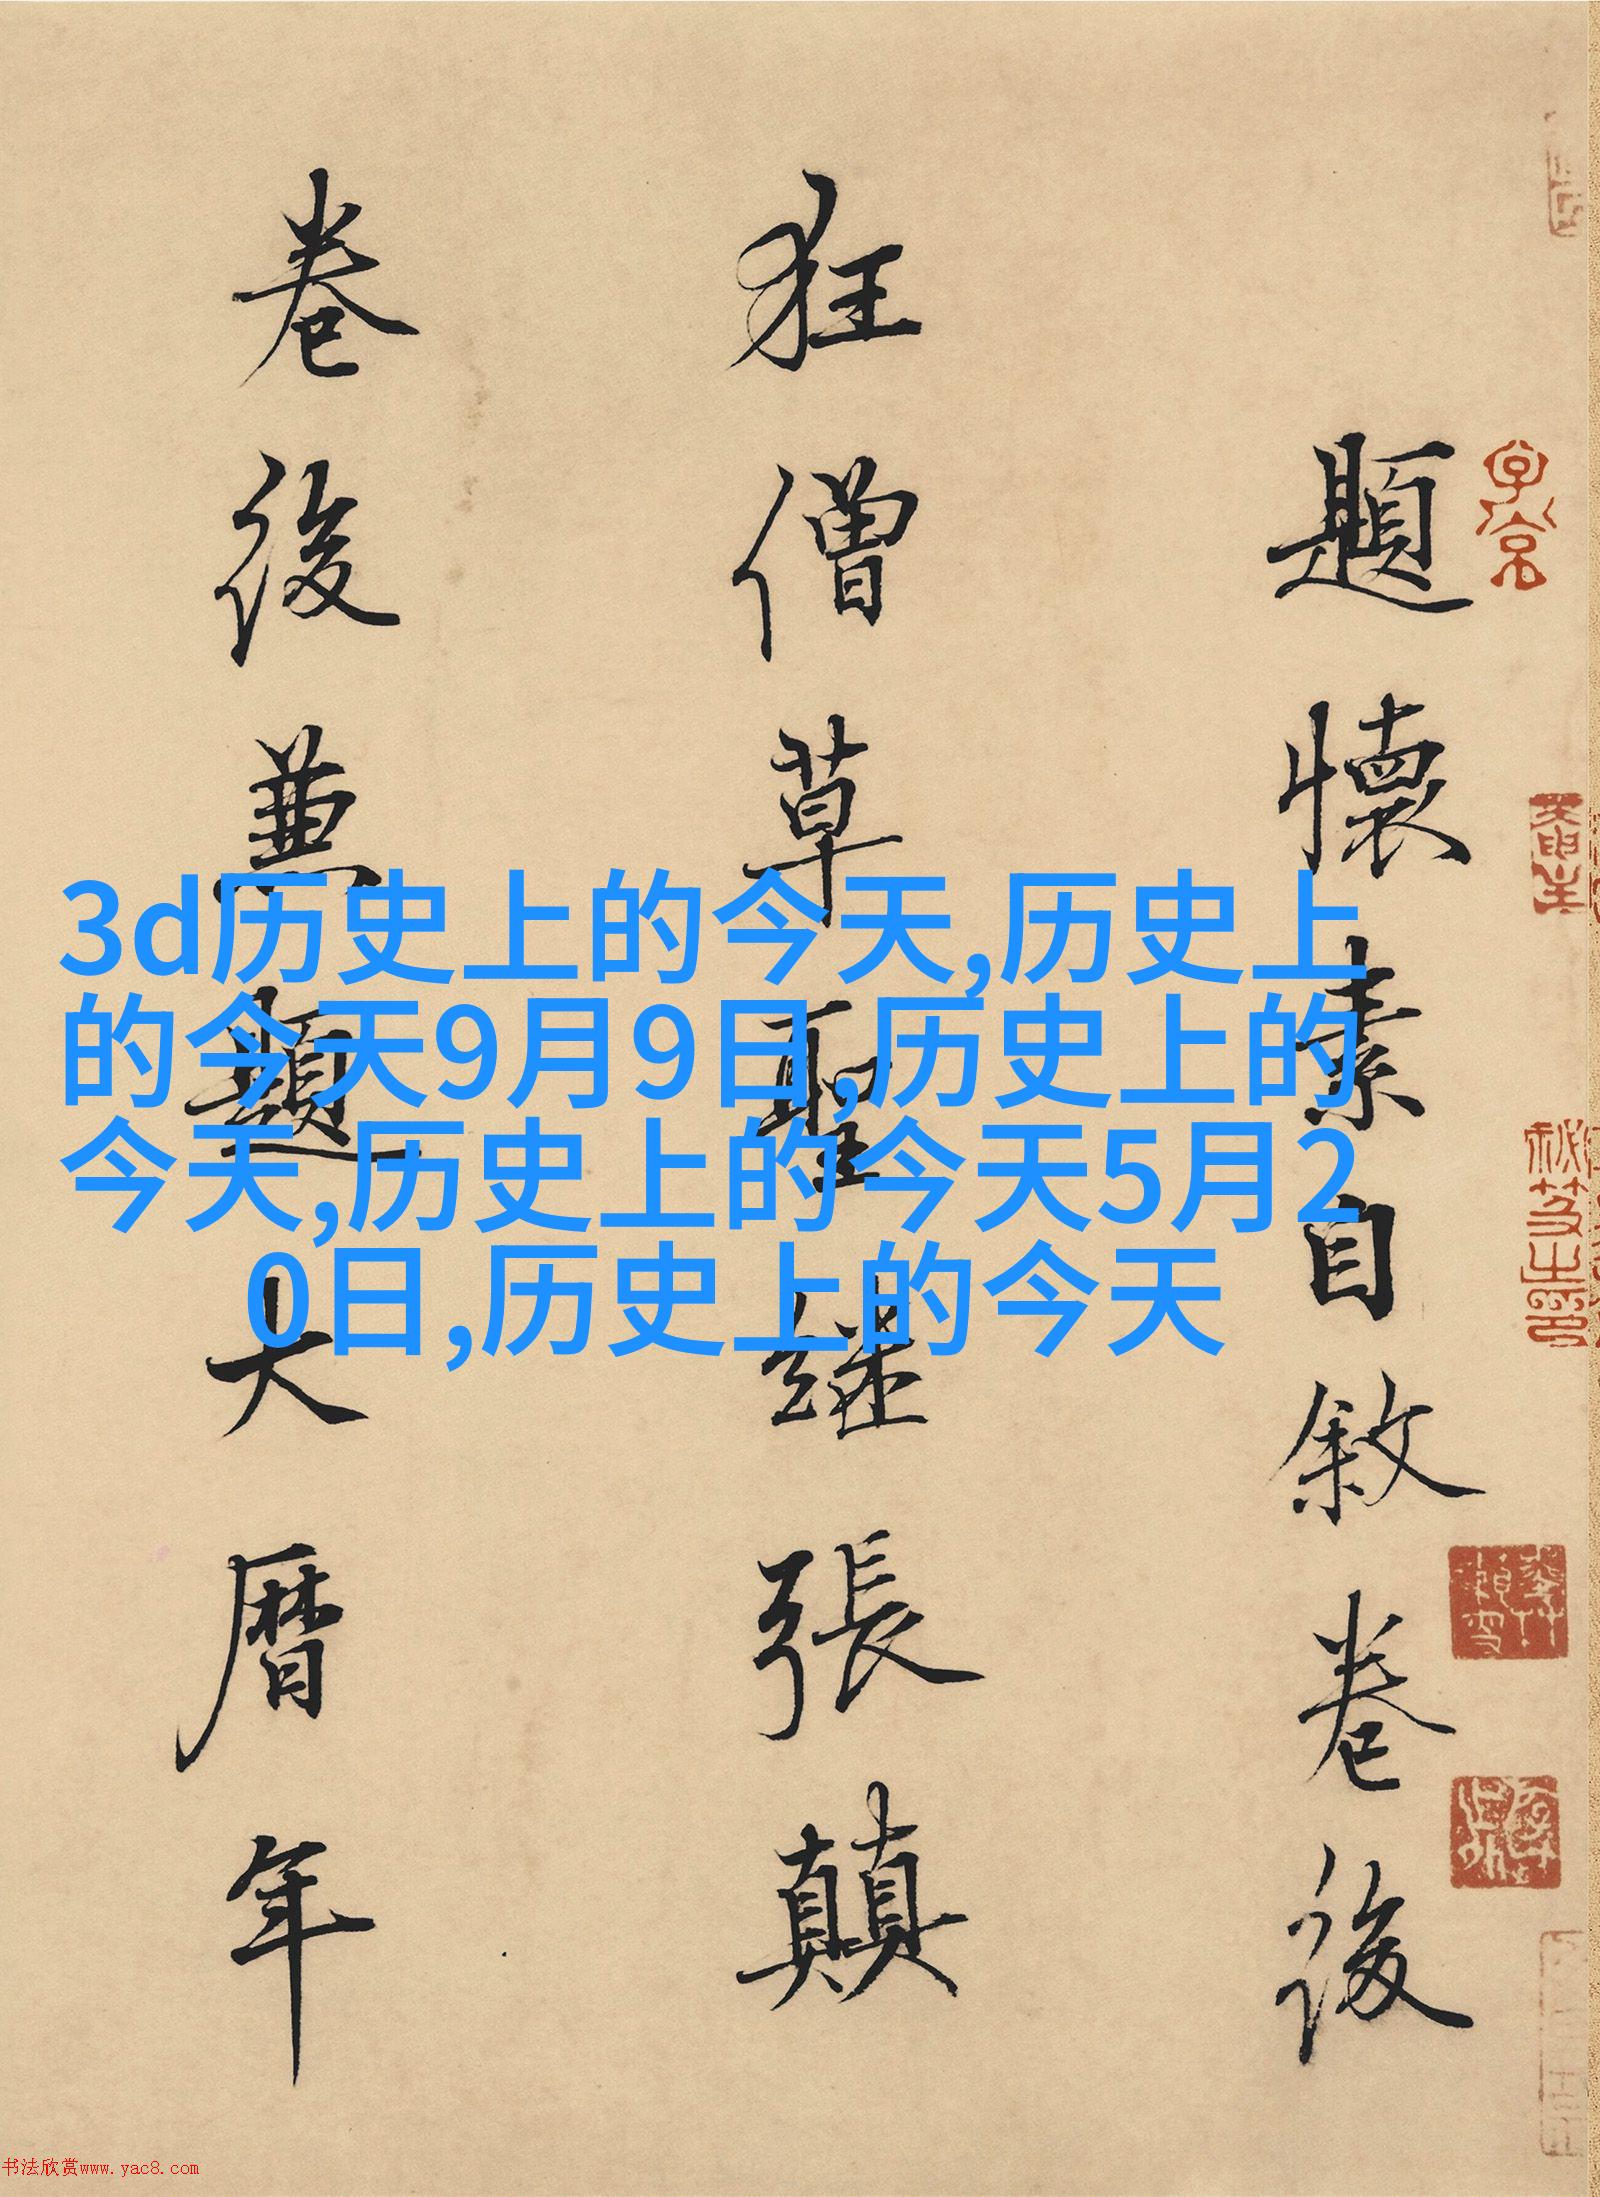 題懷素自敘卷後
狂僧草聖繼張顛
卷後兼題大曆年
3d历史上的今天,历史上
的今天9月9日,历史上的
今天,历史上的今天5月2
0日,历史上的今天
书法欣赏www.yac8.com